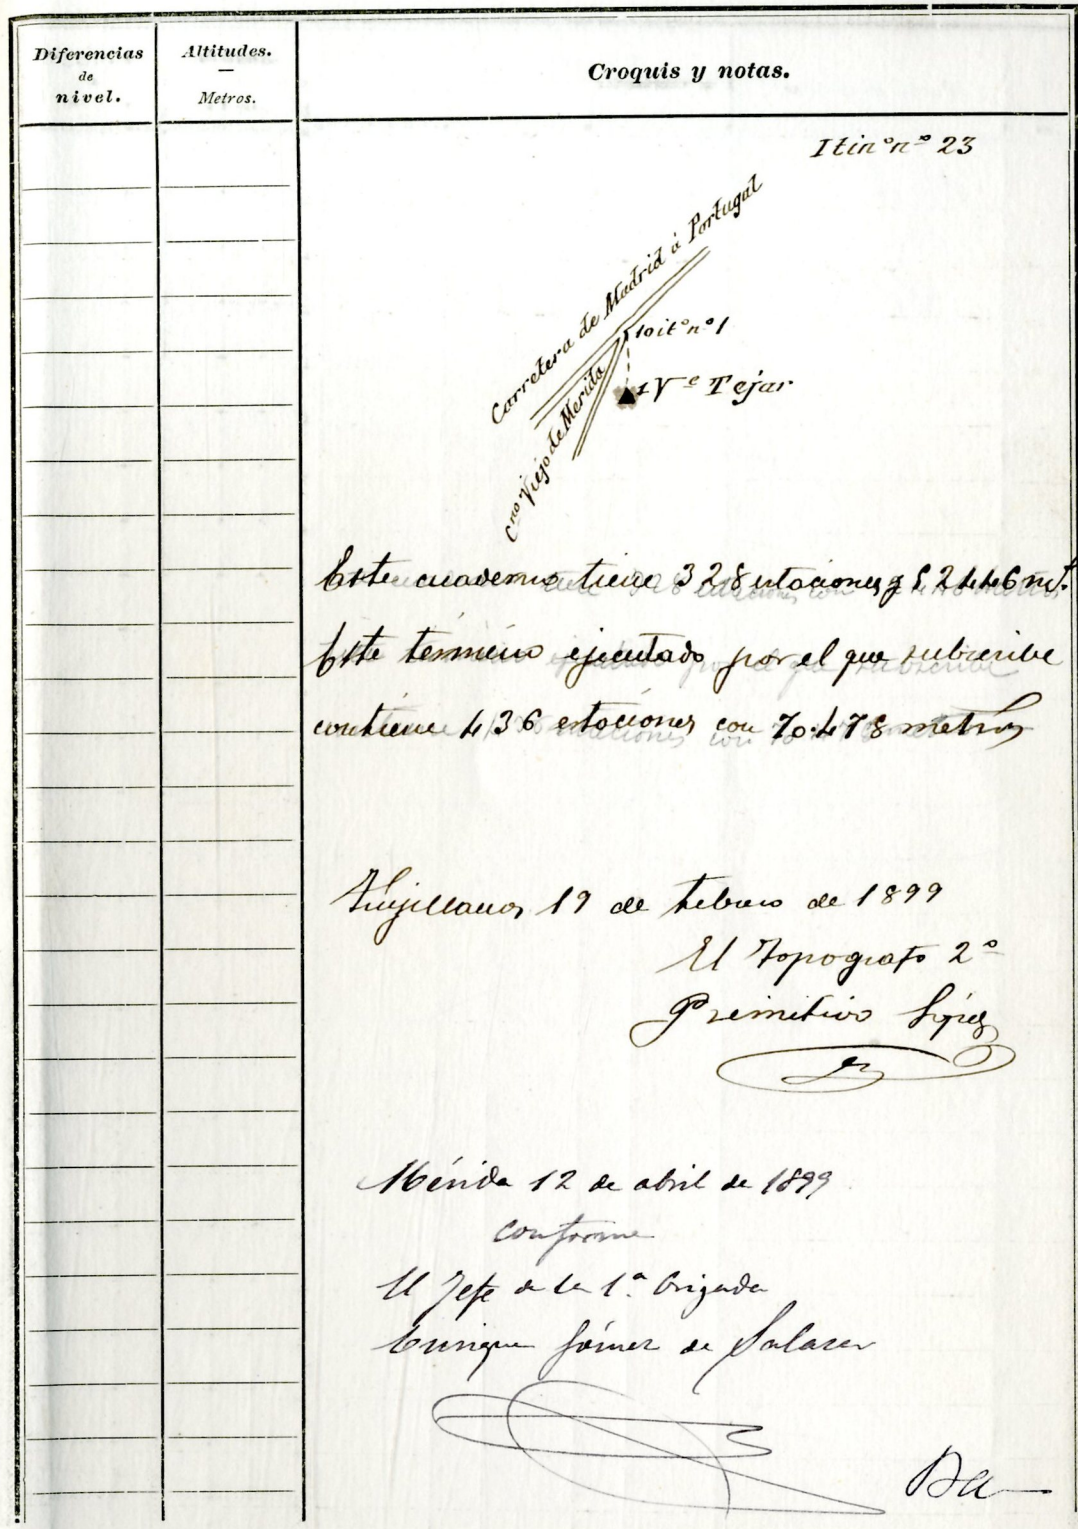 Diferencias
de
nivel.
Altitudes.
Metros.
Croquis y notas.
Itinº nº 23
Carretera de Madrid á Portugal
10 itº nº 1
1 Vᵉ Tejar
Cⁿᵒ Viejo de Merida
Este cuaderno tiene 328 estaciones y 52446 mt.
Este término ejecutado por el que subscribe
contiene 436 estaciones con 70.478 metros
Trujillanos 19 de febrero de 1899
El Topografo 2º
Primitivo López
Mérida 12 de abril de 1899
conforme
El Jefe de la 1.ª brigada
Enrique Gómez de Salazar